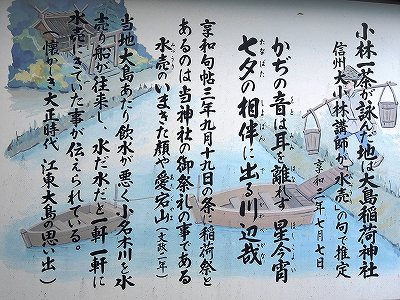 小林一茶が詠んだ地は大島稲荷神社
信州大小林講師が「水売」の句で推定
享和三年七月七日
かぢの音は耳を離れず星今宵
七夕の相伴に出る川辺哉
享和句帖三年九月十九日の条に稲荷祭と
あるのは当神社の御祭礼の事である
水売のいまきた顔や愛宕山(文政二年)
当地大島あたり飲水が悪く小名木川を水
売り船が往来し、水だ水だと一軒一軒に
水売にきていた事が伝えられている。
(懐かしき大正時代 江東大島の思い出)